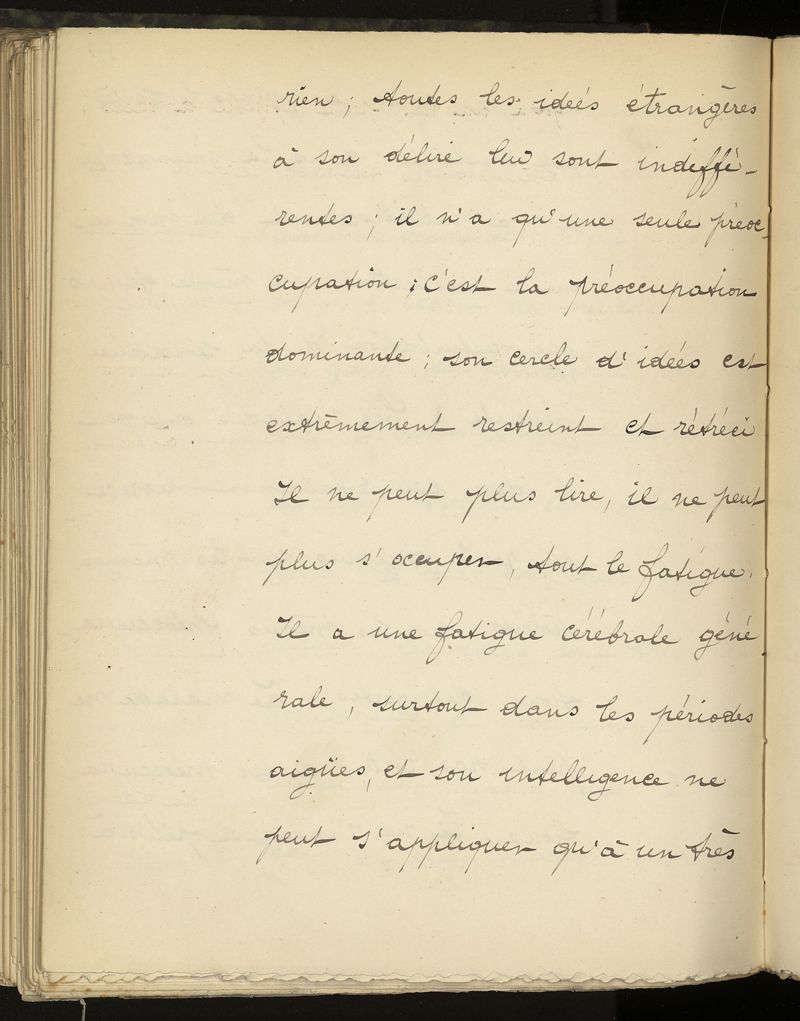 rien ; toutes les ideés étrangères
à son délire lui sont indiffé-
rentes ; il n'a qu'une seule préoc-
cupation ; c'est la préoccupation
dominante ; son cercle d'ideés est
extrêmement restreint et rétréci
Il ne peut plus lire, il ne peut
plus s'occuper, tout le fatigue.
Il a une fatigue cérébrale géné
rale, surtout dans les périodes
aigües, et son intelligence ne
peut s'appliquer qu'à un très